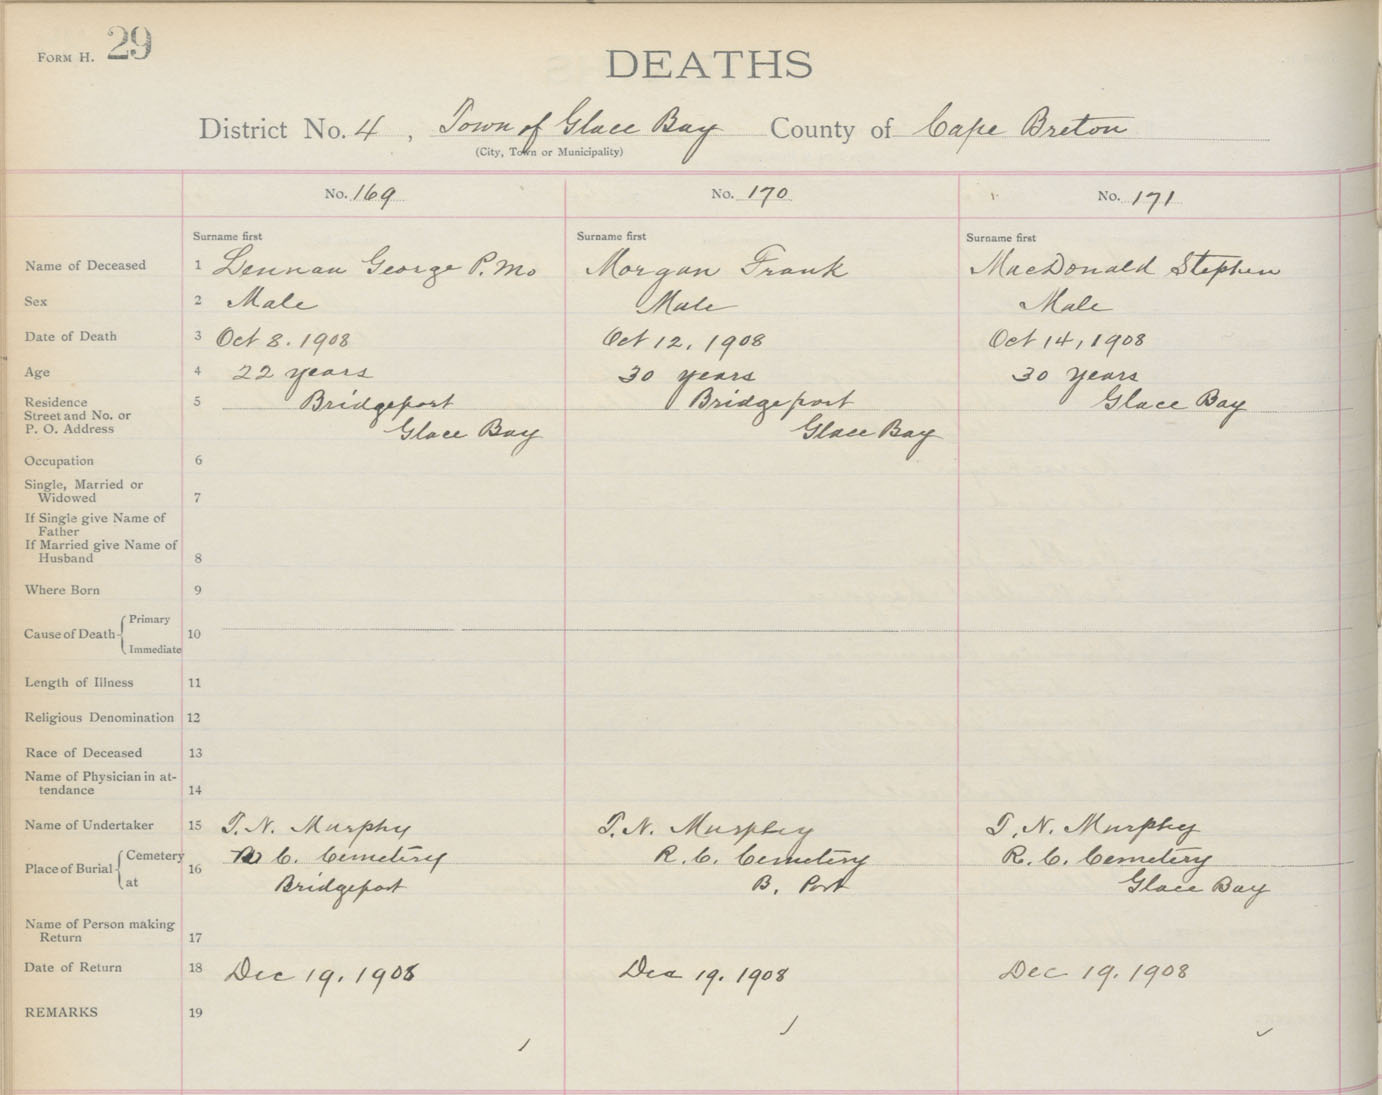 FORM H. 29
DEATHS
District No. 4, Town of Glace Bay County of Cape Breton
(City, Town or Municipality)
No. 169 No. 170 No. 171
Surname first Surname first Surname first
Name of Deceased 1 Lennan George P. Mc Morgan Frank MacDonald Stephen
Sex 2 Male Male Male
Date of Death 3 Oct 8. 1908 Oct 12, 1908 Oct 14, 1908
Age 4 22 years 30 years 30 years
Residence 5 Bridgeport Bridgeport Glace Bay
Street and No. or
P. O. Address Glace Bay Glace Bay
Occupation 6
Single, Married or
Widowed 7
If Single give Name of
Father
If Married give Name of
Husband 8
Where Born 9
Cause of Death { Primary
10
Immediate
Length of Illness 11
Religious Denomination 12
Race of Deceased 13
Name of Physician in at-
tendance 14
Name of Undertaker 15 T. N. Murphy T. N. Murphy T. N. Murphy
Place of Burial { Cemetery 16 R C. Cemetery R. C. Cemetery R. C. Cemetery
at Bridgeport B. Port Glace Bay
Name of Person making
Return 17
Date of Return 18 Dec 19. 1908 Dec 19. 1908 Dec 19. 1908
REMARKS 19